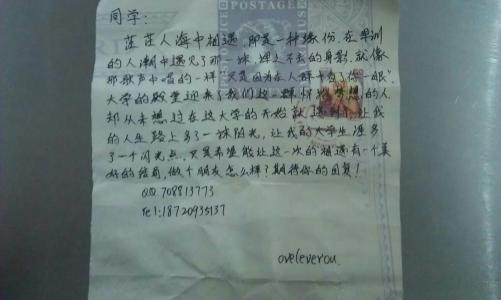 POSTAGE
同学：
茫茫人海中相遇，即是一种缘份，在军训
的人潮中遇见了那一抹挥之不去的身影，就像
那歌声中唱的一样“只是因为在人群中多了你一眼”，
大学的殿堂迎来了我们这一群怀揣梦想的人
却从未想过在这大学的开始就遇到了，让我
的人生路上多了一抹阳光，让我的大学生涯多
了一个闪光点，只是希望能让这一次的相遇有一个美
好的结局，做个朋友怎么样？期待你的回复！
QQ:708813773
Tel:18720935137
oveleverou.